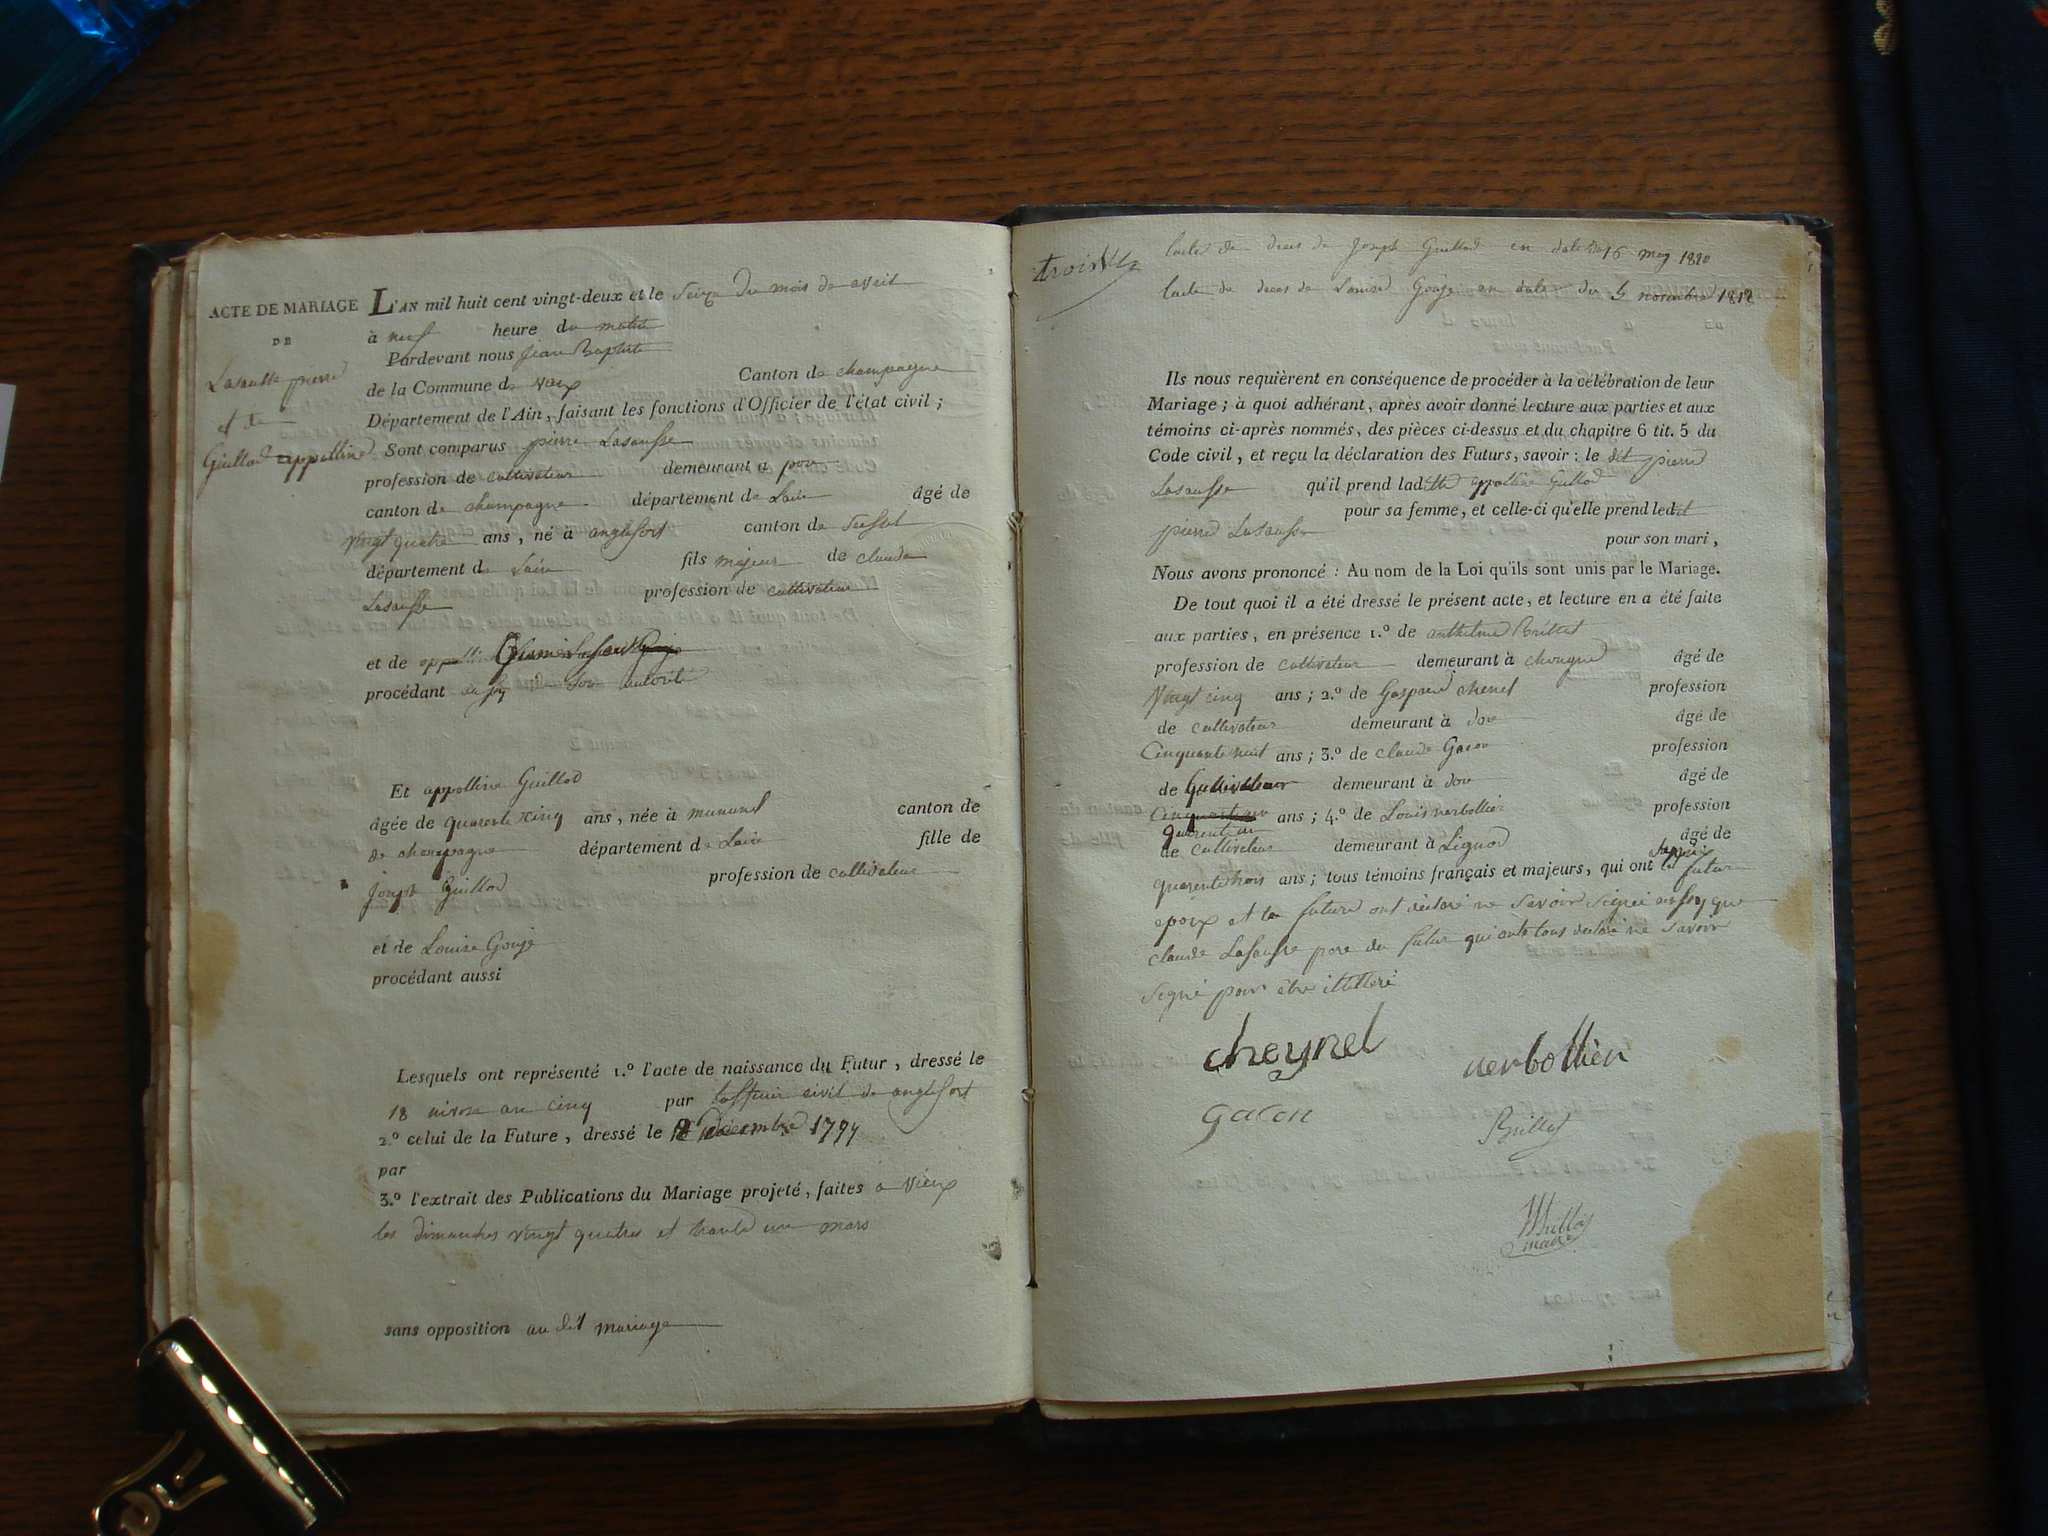 ACTE DE MARIAGE
DE
Lasausse pierre
et de
Guillod appolline
L'AN mil huit cent vingt-deux et le Seize du mois de avril
à neuf heure du matin
Pardevant nous Jean Baptiste
de la Commune de Canton de champagne
Département de l'Ain, faisant les fonctions d'Officier de l'état civil ;
Sont comparus pierre Lasausse
profession de cultivateur demeurant a
canton de champagne département de Lain âgé de
vingt quatre ans, né à anglefort canton de Seissel
département de Lain fils majeur de claude
Lasausse profession de cultivateur
et de
procédant de son autorité
Et appolline Guillod
âgée de quarente cinq ans, née à canton de
de champagne département de Lain fille de
Joseph Guillod profession de cultivateur
et de Louise Gouje
procédant aussi
Lesquels ont représenté 1.º l'acte de naissance du Futur, dressé le
18 nivose an cinq par civil de anglefort
2.º celui de la Future, dressé le
par
3.º l'extrait des Publications du Mariage projeté, faites a vieux
les dimanches vingt quatres et trante un mars
sans opposition au dit mariage
trois
lacte de deces de Joseph Guillod en date du 16 may 1810
lacte de deces de Louise Gouje en date du 5 novembre 1812
Ils nous requièrent en conséquence de procéder à la célébration de leur
Mariage ; à quoi adhérant, après avoir donné lecture aux parties et aux
témoins ci-après nommés, des pièces ci-dessus et du chapitre 6 tit. 5 du
Code civil, et reçu la déclaration des Futurs, savoir : le dit pierre
Lasausse qu'il prend laditte appolline Guillod
pour sa femme, et celle-ci qu'elle prend ledit
pierre Lasausse pour son mari,
Nous avons prononcé : Au nom de la Loi qu'ils sont unis par le Mariage.
De tout quoi il a été dressé le présent acte, et lecture en a été faite
aux parties, en présence 1.º de anthelme Brillet
profession de cultivateur demeurant à chongne âgé de
Vingt cinq ans ; 2.º de Gaspard chenel profession
de cultivateur demeurant à don âgé de
Cinquante huit ans ; 3.º de claude Gacon profession
de Cultivateur demeurant à don âgé de
quarente un ans ; 4.º de Louis verbollier profession
de cultivateur demeurant à Lignod âgé de
quarente trois ans ; tous témoins français et majeurs, qui ont signé le futur
epoix et la future ont déclaré ne Savoir Signé ainsy que
claude Lasausse pere du futur qui ont tous declaré ne Savoir
Signé pour être illitteré
cheynel verbollier
gacon Brillet
maire